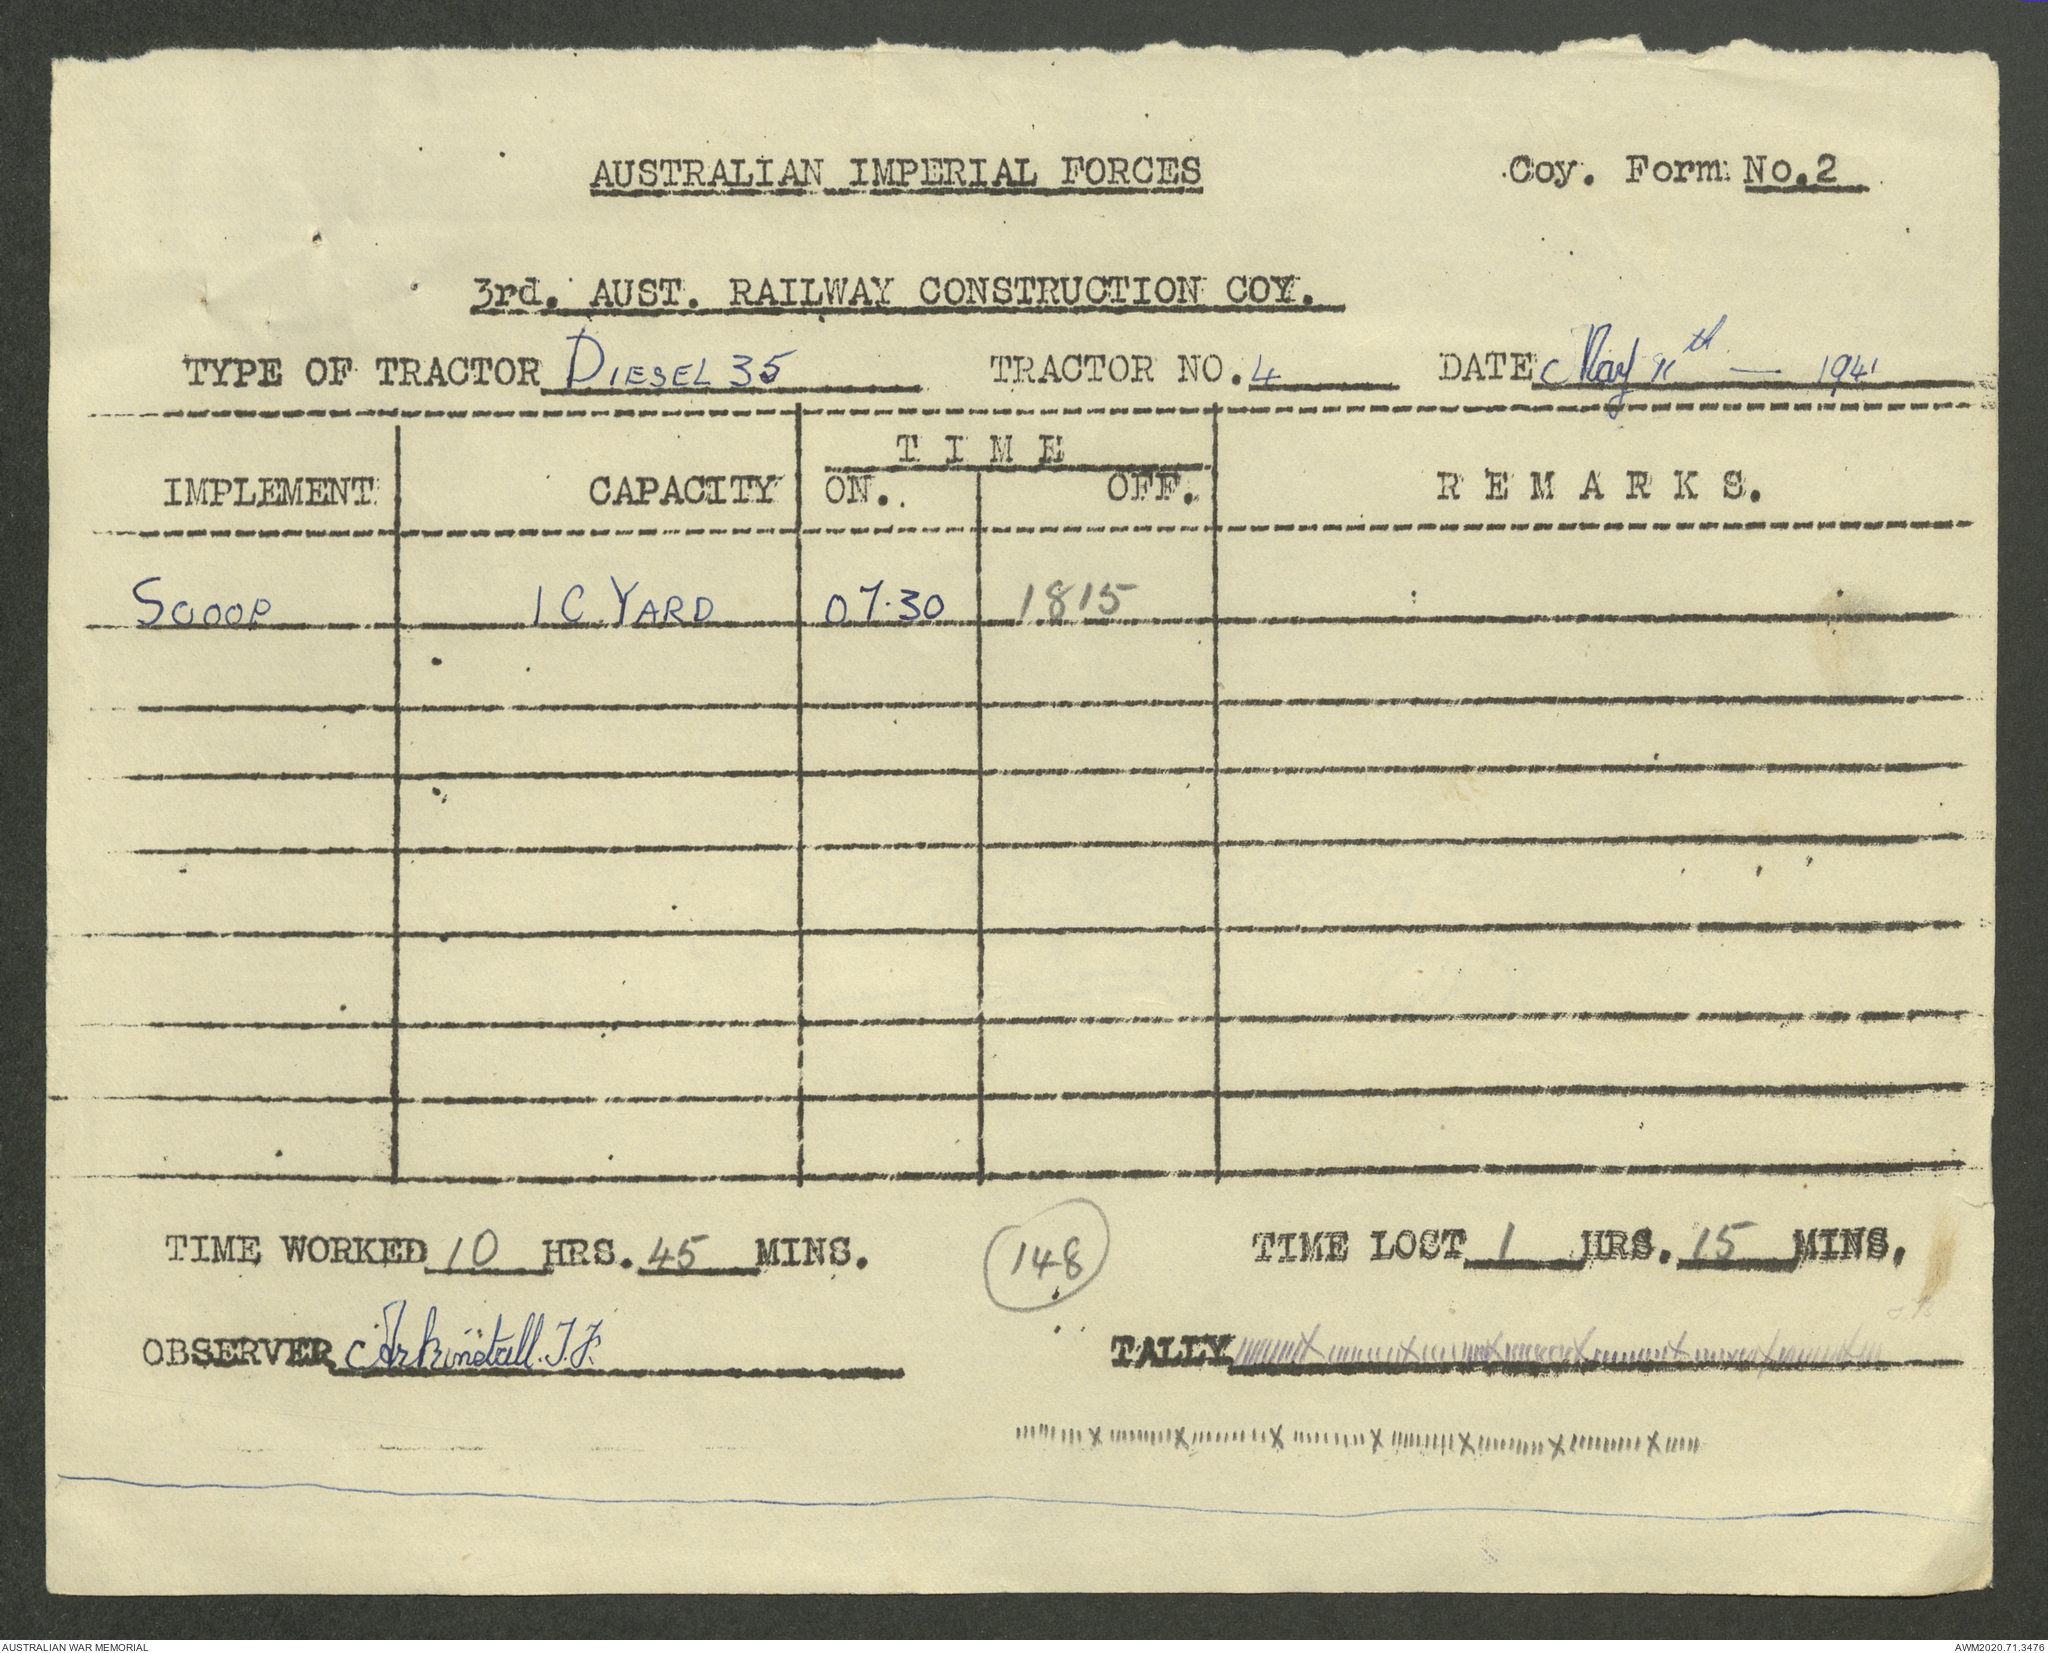 AUSTRALIAN IMPERIAL FORCES Coy. Form No.2
3rd. AUST. RAILWAY CONSTRUCTION COY.
TYPE OF TRACTOR DIESEL 35 TRACTOR NO. 4 DATE May 11th — 1941
TIME
IMPLEMENT CAPACITY ON. OFF. REMARKS.
SCOOP 1 C. YARD 07.30 1815
TIME WORKED 10 HRS. 45 MINS. 148 TIME LOST 1 HRS. 15 MINS.
OBSERVER Arkinstall. J.F. TALLY
AUSTRALIAN WAR MEMORIAL AWM2020.71.3476